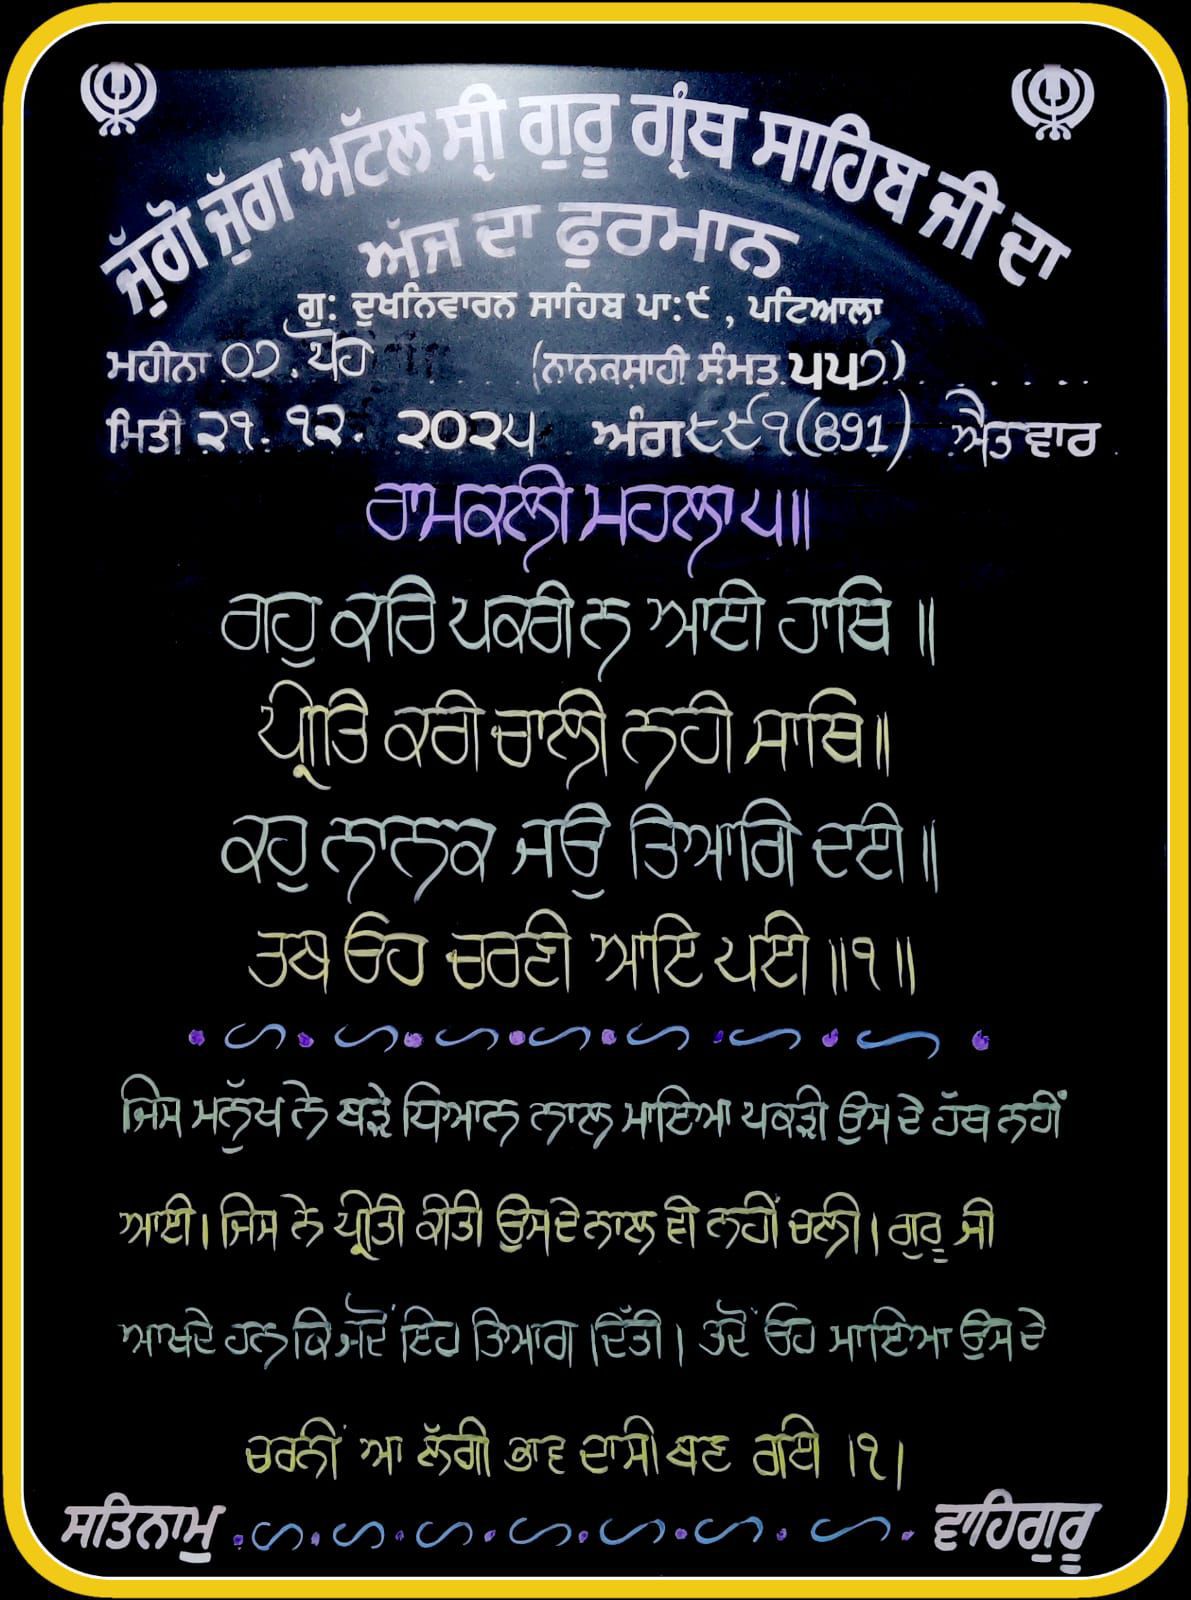 ਜੁੱਗੋ ਜੁੱਗ ਅੱਟਲ ਸ੍ਰੀ ਗੁਰੂ ਗ੍ਰੰਥ ਸਾਹਿਬ ਜੀ ਦਾ
ਅੱਜ ਦਾ ਫੁਰਮਾਨ
ਗੁ: ਦੁਖਨਿਵਾਰਨ ਸਾਹਿਬ ਪਾ:੯ , ਪਟਿਆਲਾ
ਮਹੀਨਾ ੦੭. ਪੋਹ (ਨਾਨਕਸ਼ਾਹੀ ਸੰਮਤ ੫੫੭)
ਮਿਤੀ ੨੧. ੧੨. ੨੦੨੫ ਅੰਗ ੮੯੧ (891) ਐਤਵਾਰ
ਰਾਮਕਲੀ ਮਹਲਾ ੫॥
ਗਹੁ ਕਰਿ ਪਕਰੀ ਨ ਆਈ ਹਾਥਿ ॥
ਪ੍ਰੀਤਿ ਕਰੀ ਚਾਲੀ ਨਹੀ ਸਾਥਿ॥
ਕਹੁ ਨਾਨਕ ਜਉ ਤਿਆਗਿ ਦਈ ॥
ਤਬ ਓਹ ਚਰਣੀ ਆਇ ਪਈ ॥੧॥
ਜਿਸ ਮਨੁੱਖ ਨੇ ਬੜੇ ਧਿਆਨ ਨਾਲ ਮਾਇਆ ਪਕੜੀ ਉਸ ਦੇ ਹੱਥ ਨਹੀਂ
ਆਈ। ਜਿਸ ਨੇ ਪ੍ਰੀਤੀ ਕੀਤੀ ਉਸਦੇ ਨਾਲ ਵੀ ਨਹੀਂ ਚਲੀ। ਗੁਰੂ ਜੀ
ਆਖਦੇ ਹਨ ਕਿ ਜਦੋਂ ਇਹ ਤਿਆਗ ਦਿੱਤੀ। ਤਦੋਂ ਓਹ ਮਾਇਆ ਉਸਦੇ
ਚਰਨੀਂ ਆ ਲੱਗੀ ਭਾਵ ਦਾਸੀ ਬਣ ਗਇ ।੧।
ਸਤਿਨਾਮੁ ਵਾਹਿਗੁਰੂ